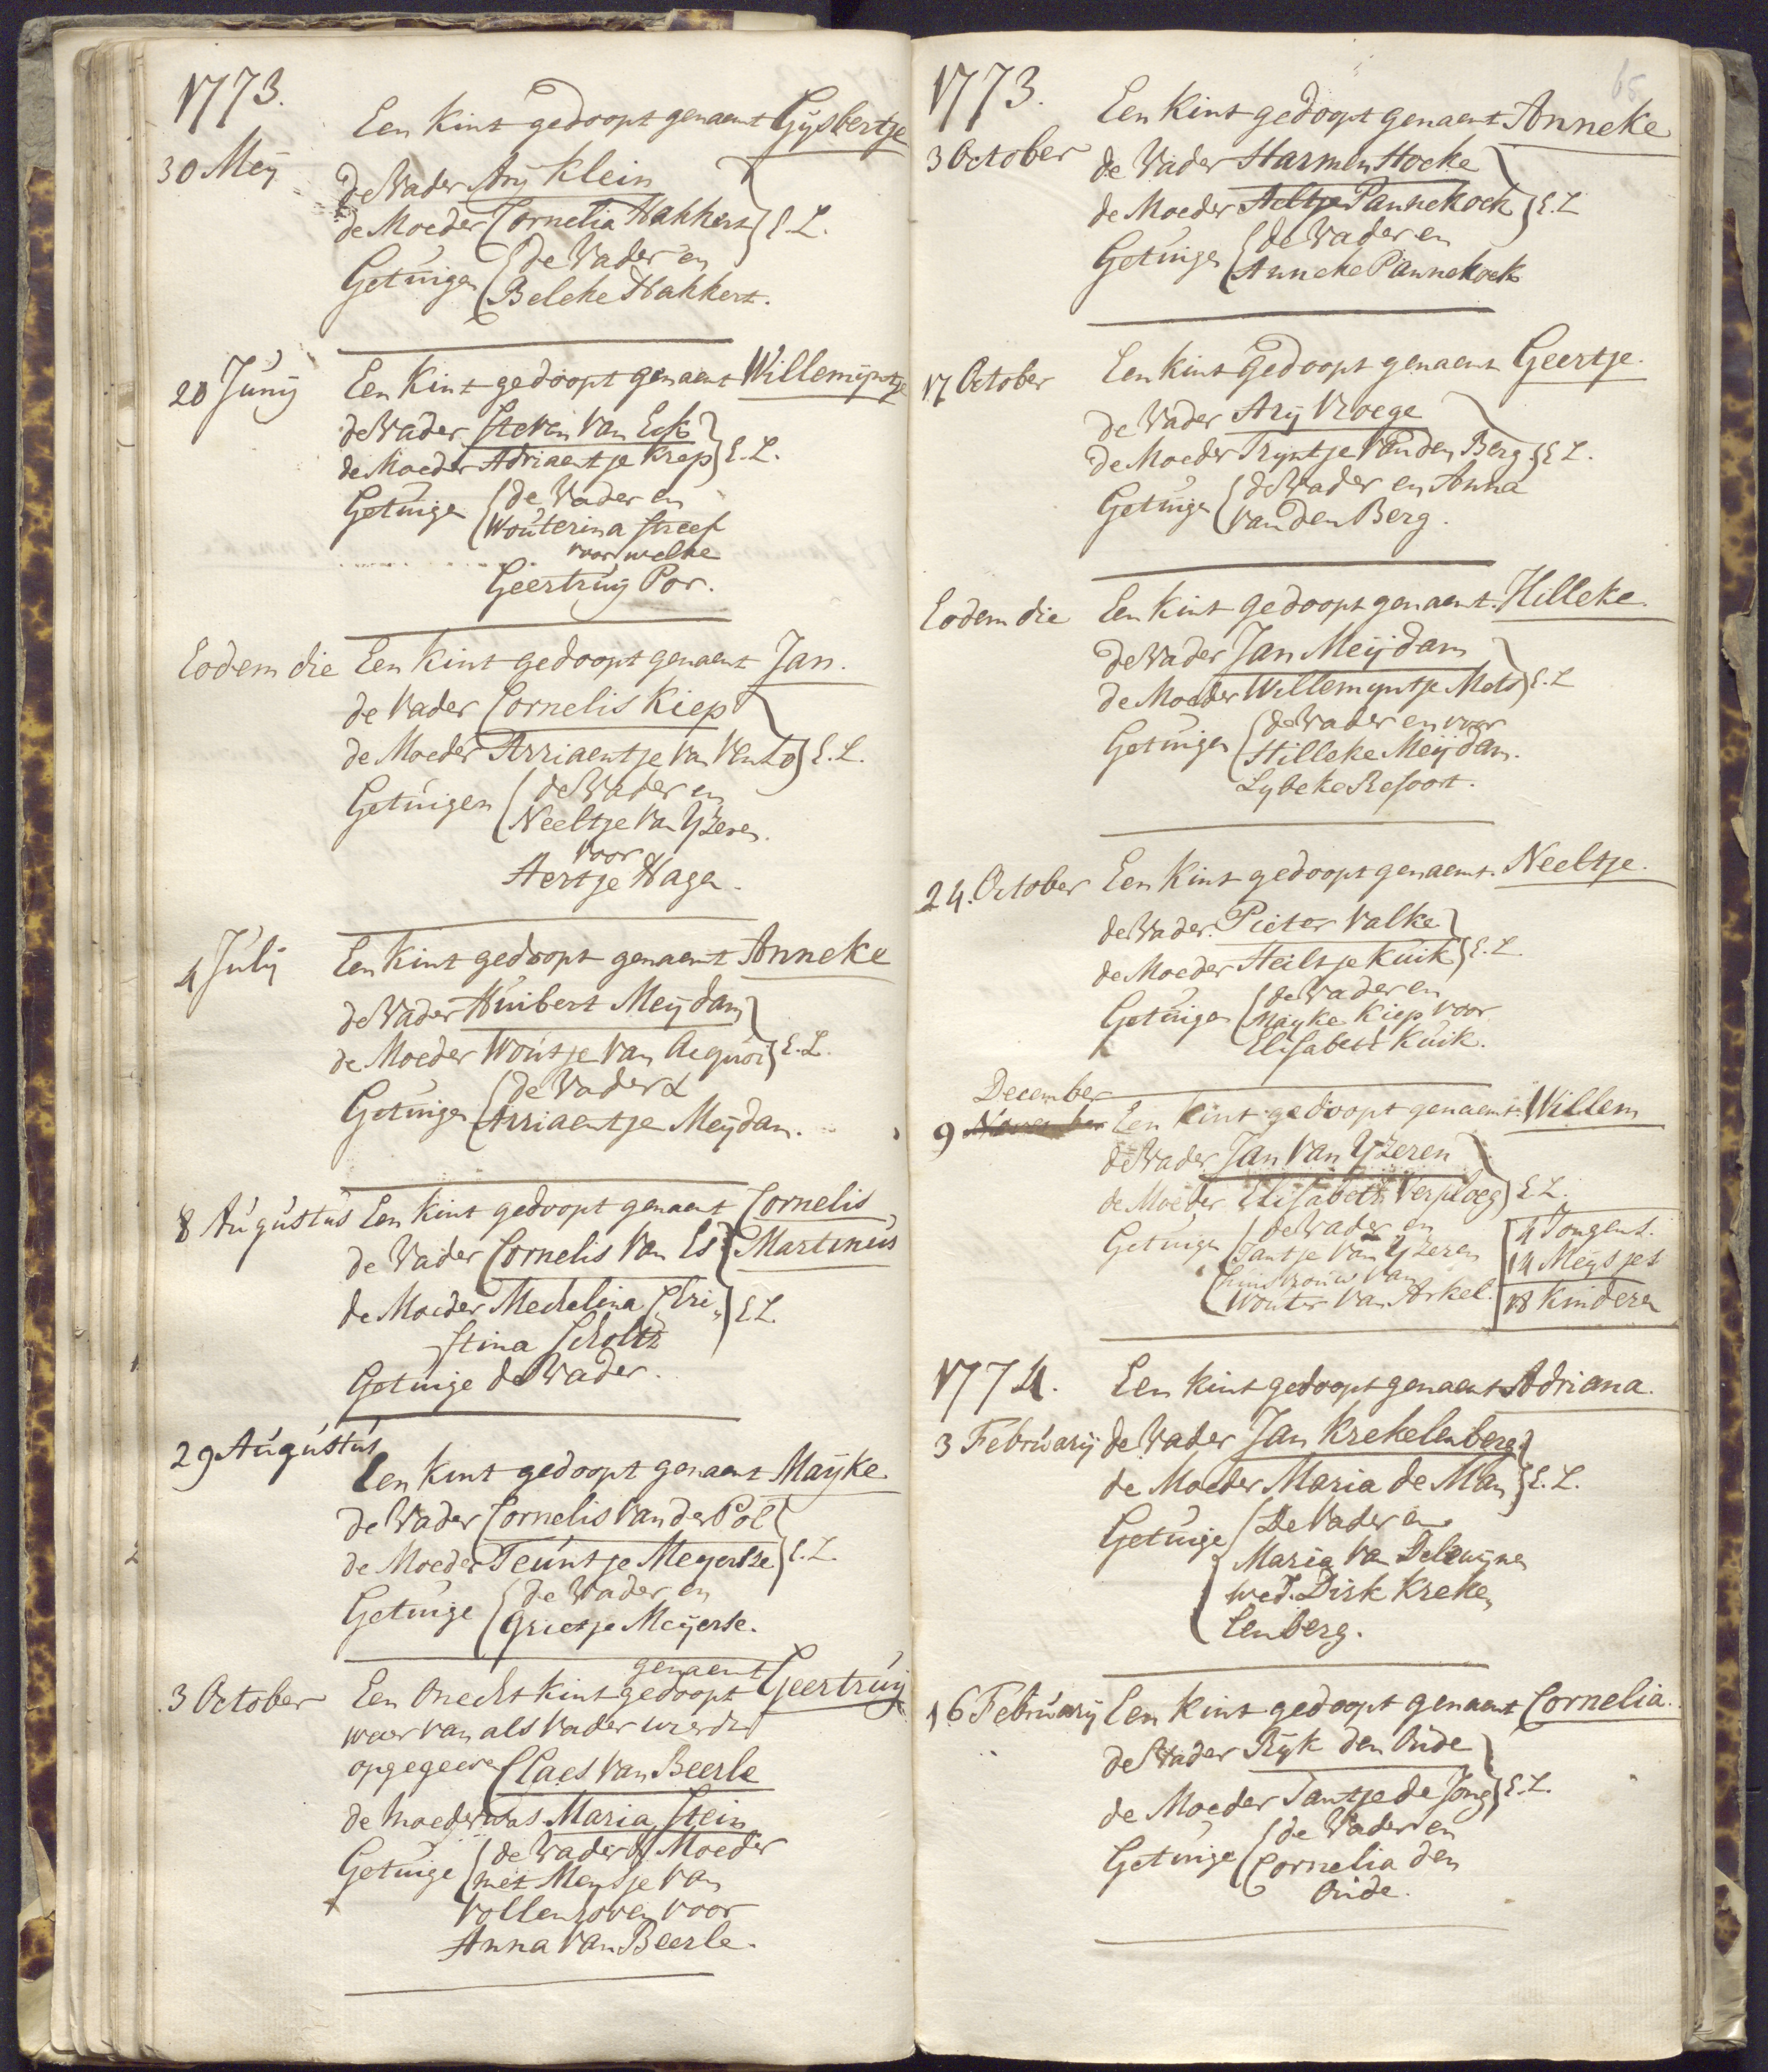 1773.
30 Meij
Een Kint gedoopt genaemt Gijsbertje
de Vader Arij Klein
de Moeder Cornelia Hakkert } E.L.
Getuigen { de Vader en
Beleke Hakkert.
20 Junij
Een Kint gedoopt genaemt Willemijntje
de Vader Steven Van Eck
de Moeder Adriaentje Krep } E.L.
Getuige { de Vader en
Wouterina Streef
voor welke
Geertruij Por.
Eodem die Een Kint gedoopt genaemt Jan.
de Vader Cornelis Kiep
de Moeder Arriaentje van Vento } E.L.
Getuigen { de Vader en
Neeltje Van IJzeren.
voor
Aertje Haga.
4 Julij
Een Kint gedoopt genaemt Anneke
de Vader Huibert Meijdam
de Moeder Woutje Van Acquoi } E.L.
Getuigen { de Vader &
Arriaentje Meijdam.
8 Augustus Een Kint gedoopt genaemt Cornelis
de Vader Cornelis Van Es } Martinus
de Moeder Mechelina Chri,, } E.L.
stina Scholtz
Getuige de Vader.
29 Augustus
Een Kint gedoopt genaemt Maijke
de Vader Cornelis Van der Pol
de Moeder Teuntje Meyertse } E.L.
Getuige { de Vader en
Grietje Meijerse.
3 October
genaemt
Een Onecht Kint gedoopt Geertruij
waer van als Vader wierdt
opgegeeven Claes Van Beerle
de Moeder was Maria Stein
Getuige { de Vader & Moeder
met Mensje Van
Vollenhoven voor
Anna Van Beerle.
65
1773.
3 October
Een Kint gedoopt genaemt Anneke
de Vader Harmen Hoeke
de Moeder Aeltje Pannekoek } E.L
Getuige { de Vader en
Anneke Pannekoek
17 October
Een Kint gedoopt genaemt Geertje.
de Vader Arij Vroege
de Moeder Trijntje Van den Berg } E.L.
Getuige { de Vader en Anna
van den Berg.
Eodem die
Een Kint gedoopt genaemt Hilleke.
de Vader Jan Meijdam
de Moeder Willemijntje Mets } E.L
Getuigen { de Vader en voor
Hilleke Meijdam.
Lybeke Resoort.
24. October
Een Kint gedoopt genaemt Neeltje.
de Vader Pieter Valke
de Moeder Heiltje Kuik } E.L.
Getuige { de Vader en
Mayke Kiep voor
Elisabeth Kuik.
December
9 November Een Kint gedoopt genaemt Willem
de Vader Jan Van IJzeren
de Moeder Elisabeth Verploeg } E.L.
Getuige { de Vader en
Jantje Van IJzeren
huisvrouw Van
Wouter Van Arkel.
4 Jongens.
14 Meijsjes
18 Kinderen
1774.
3 Februarij
Een Kint gedoopt genaemt Adriana.
de Vader Jan Krekelenberg
de Moeder Maria de Man } E.L.
Getuige { De Vader en
Maria Van Delewijnen
wed. Dirk Kreke,,
lenberg.
16 Februarij Een Kint gedoopt genaemt Cornelia.
de Vader Rijk den Oude
de Moeder Jantje de Jong } E.L.
Getuige { de Vader en
Cornelia den
Oude.